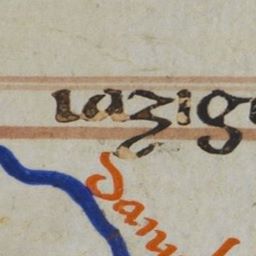 iazige
danub